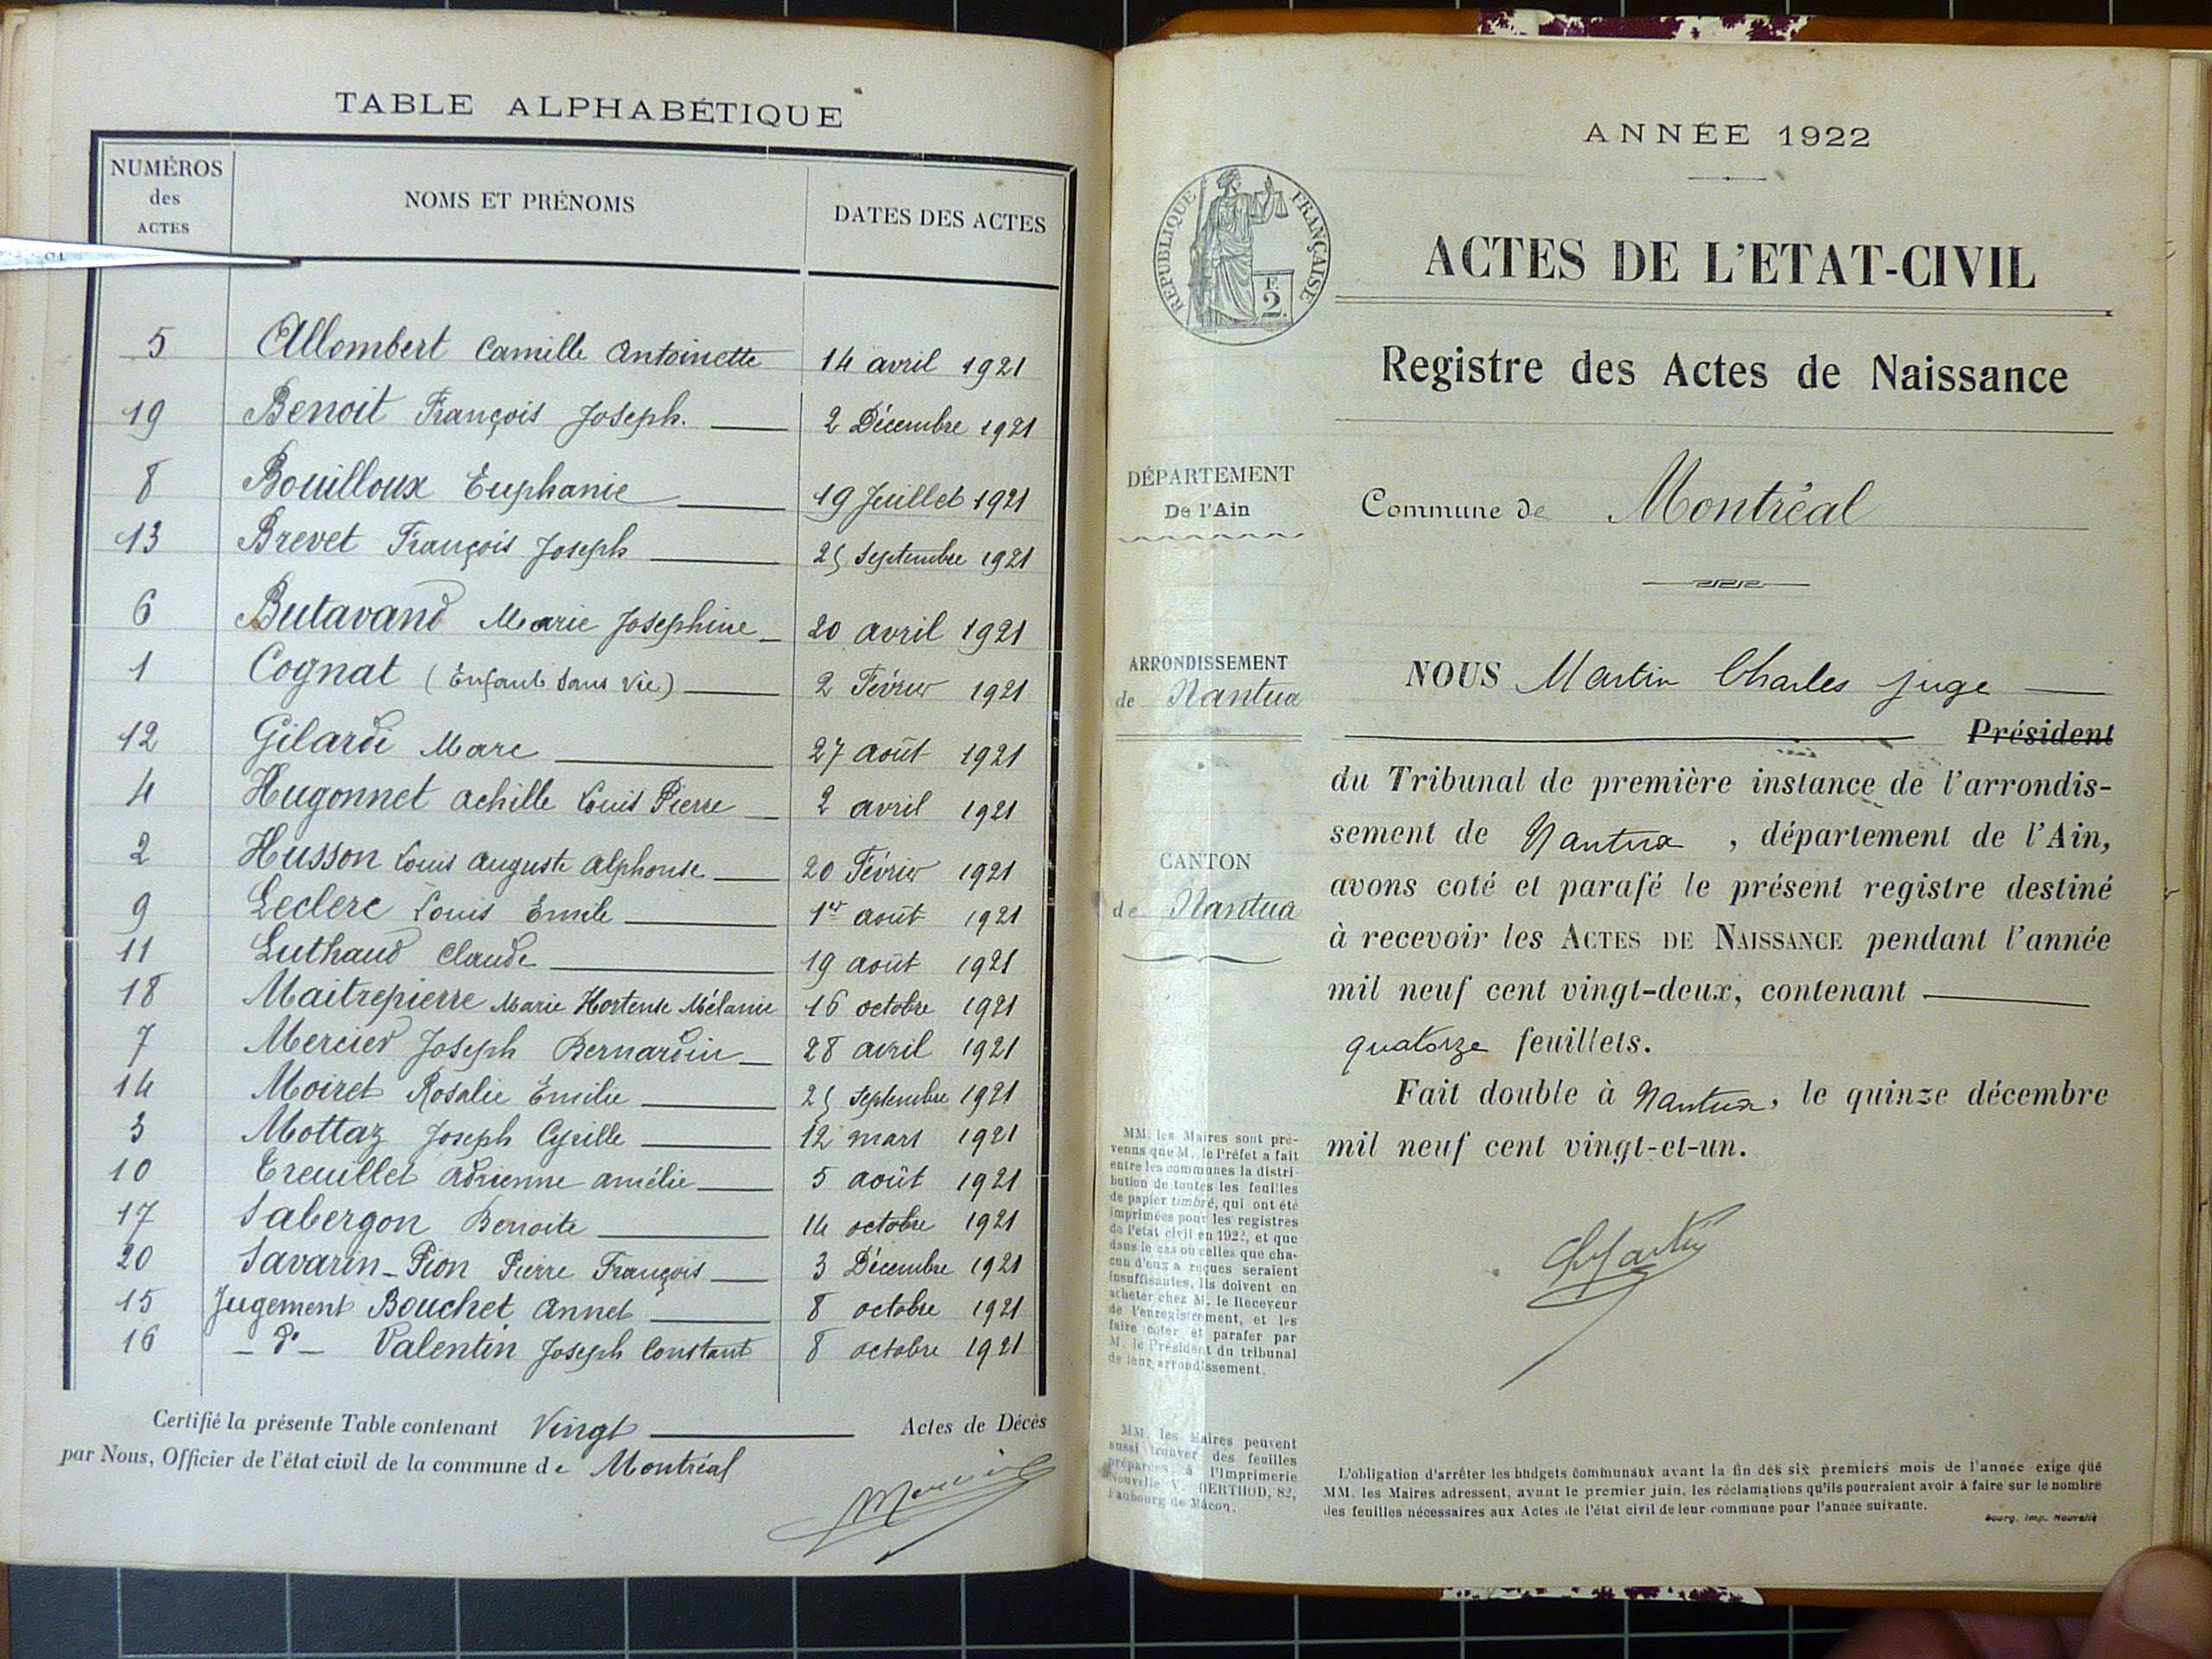 TABLE ALPHABÉTIQUE
NUMÉROS des ACTES NOMS ET PRÉNOMS DATES DES ACTES
5 Allombert Camille Antoinette 14 avril 1921
19 Benoit François Joseph. 2 Décembre 1921
8 Bouilloux Euphanie 19 Juillet 1921
13 Brevet François Joseph 25 Septembre 1921
6 Butavand Marie Joséphine 20 avril 1921
1 Cognat (Enfant sans vie) 2 Février 1921
12 Gilardi Marc 27 août 1921
4 Hugonnet achille Louis Pierre 2 avril 1921
2 Husson Louis auguste alphonse 20 Février 1921
9 Leclerc Louis Emile 1er août 1921
11 Luthaud Claude 19 août 1921
18 Maitrepierre Marie Hortense Mélanie 16 octobre 1921
7 Mercier Joseph Bernardin 28 avril 1921
14 Moiret Rosalie Emilie 25 Septembre 1921
3 Mottaz Joseph Cyrille 12 mars 1921
10 Treuillet Adrienne amélie 5 août 1921
17 Sabergon Benoite 14 octobre 1921
20 Savarin-Pion Pierre François 3 Décembre 1921
15 Jugement Bouchet Annet 8 octobre 1921
16 - do - Valentin Joseph Constant 8 octobre 1921
Certifié la présente Table contenant Vingt Actes de Décès
par Nous, Officier de l'état civil de la commune de Montréal
ANNÉE 1922
RÉPUBLIQUE FRANÇAISE
F. 2.
ACTES DE L'ETAT-CIVIL
Registre des Actes de Naissance
DÉPARTEMENT
De l'Ain
Commune de Montréal
ARRONDISSEMENT
de Nantua
CANTON
de Nantua
NOUS Martin Charles juge
Président
du Tribunal de première instance de l'arrondis-
sement de Nantua , département de l'Ain,
avons coté et parafé le présent registre destiné
à recevoir les ACTES DE NAISSANCE pendant l'année
mil neuf cent vingt-deux, contenant
quatorze feuillets.
Fait double à Nantua, le quinze décembre
mil neuf cent vingt-et-un.
ChMartin
MM. les Maires sont pré-
venus que M. le Préfet a fait
entre les communes la distri-
bution de toutes les feuilles
de papier timbré, qui ont été
imprimées pour les registres
de l'état civil en 1922, et que
dans le cas où celles que cha-
cun d'eux a reçues seraient
insuffisantes, ils doivent en
acheter chez M. le Receveur
de l'enregistrement, et les
faire coter et parafer par
M. le Président du tribunal
de leur arrondissement.
MM. les Maires peuvent
aussi trouver des feuilles
préparées à l'Imprimerie
Nouvelle BERTHOD, 82,
Faubourg de Mâcon.
L'obligation d'arrêter les budgets communaux avant la fin des six premiers mois de l'année exige que
MM. les Maires adressent, avant le premier juin, les réclamations qu'ils pourraient avoir à faire sur le nombre
des feuilles nécessaires aux Actes de l'état civil de leur commune pour l'année suivante.
Bourg. Imp. Nouvelle